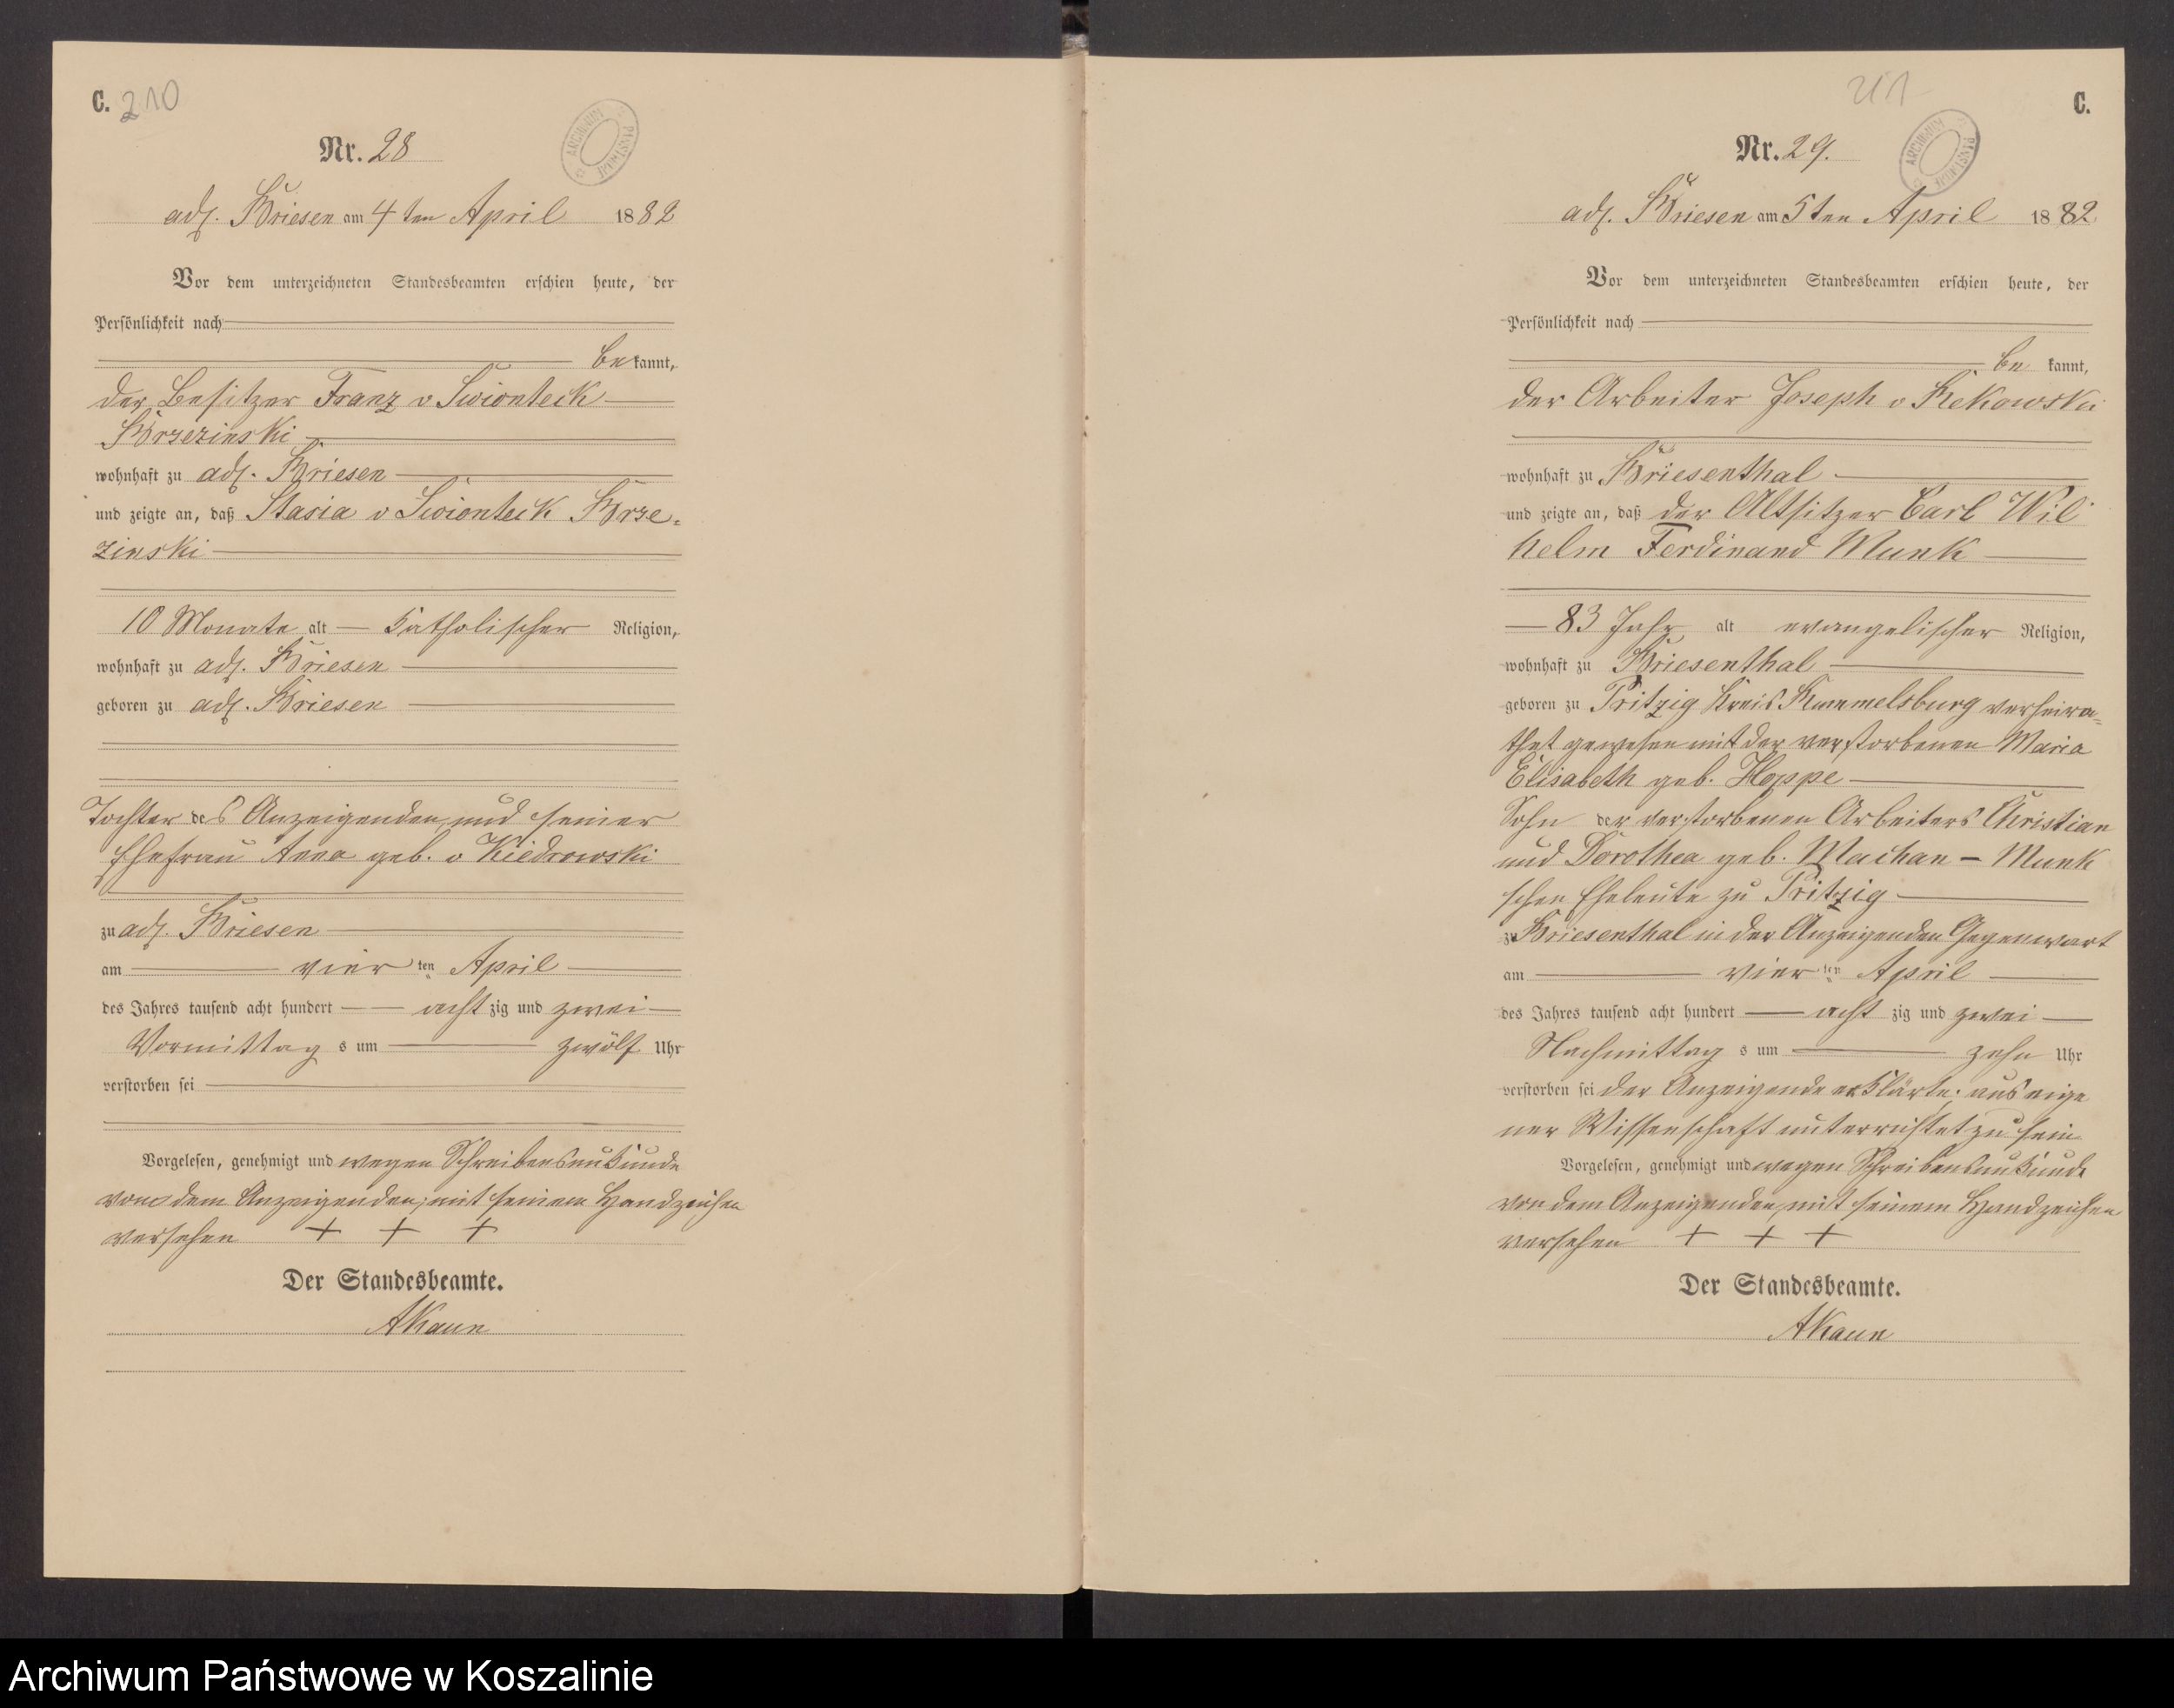 C. 210
ARCHIWUM PAŃSTWOWE
Nr. 28
adl. Briesen am 4ten April 1882
Vor dem unterzeichneten Standesbeamten erschien heute, der
Persönlichkeit nach
bekannt,
der Besitzer Franz v Swionteck
Brzezinski
wohnhaft zu adl. Briesen
und zeigte an, daß Stasia v Swionteck Brze=
zinski
10 Monate alt katholischer Religion,
wohnhaft zu adl. Briesen
geboren zu adl. Briesen
Tochter des Anzeigenden und seiner
Ehefrau Anna geb. v Kiedrowski
zu adl. Briesen
am vier ten April
des Jahres tausend acht hundert acht zig und zwei
Vormittag s um zwölf Uhr
verstorben sei
Vorgelesen, genehmigt und wegen Schreibensunkunde
von dem Anzeigenden, mit seinem Handzeichen
versehen + + +
Der Standesbeamte.
AKaun
211 C.
ARCHIWUM PAŃSTWOWE
Nr. 29.
adl. Briesen am 5ten April 1882
Vor dem unterzeichneten Standesbeamten erschien heute, der
Persönlichkeit nach
be kannt,
der Arbeiter Joseph v Rekowski
wohnhaft zu Briesenthal
und zeigte an, daß der Altsitzer Carl Wil
helm Ferdinand Munk
83 Jahr alt evangelischer Religion,
wohnhaft zu Briesenthal
geboren zu Pritzig Kreis Rummelsburg verheira=
thet gewesen mit der verstorbenen Maria
Elisabeth geb. Hoppe
Sohn der verstorbenen Arbeiters Christian
und Dorothea geb. Machan – Munk
schen Eheleute zu Pritzig
zu Briesenthal in der Anzeigenden Gegenwart
am vier ten April
des Jahres tausend acht hundert acht zig und zwei
Nachmittag s um zehn Uhr
verstorben sei der Anzeigende erklärte: aus eige
ner Wissenschaft unterrichtet zu sein
Vorgelesen, genehmigt und wegen Schreibensunkunde
von dem Anzeigenden mit seinem Handzeichen
versehen + + +
Der Standesbeamte.
AKaun
Archiwum Państwowe w Koszalinie